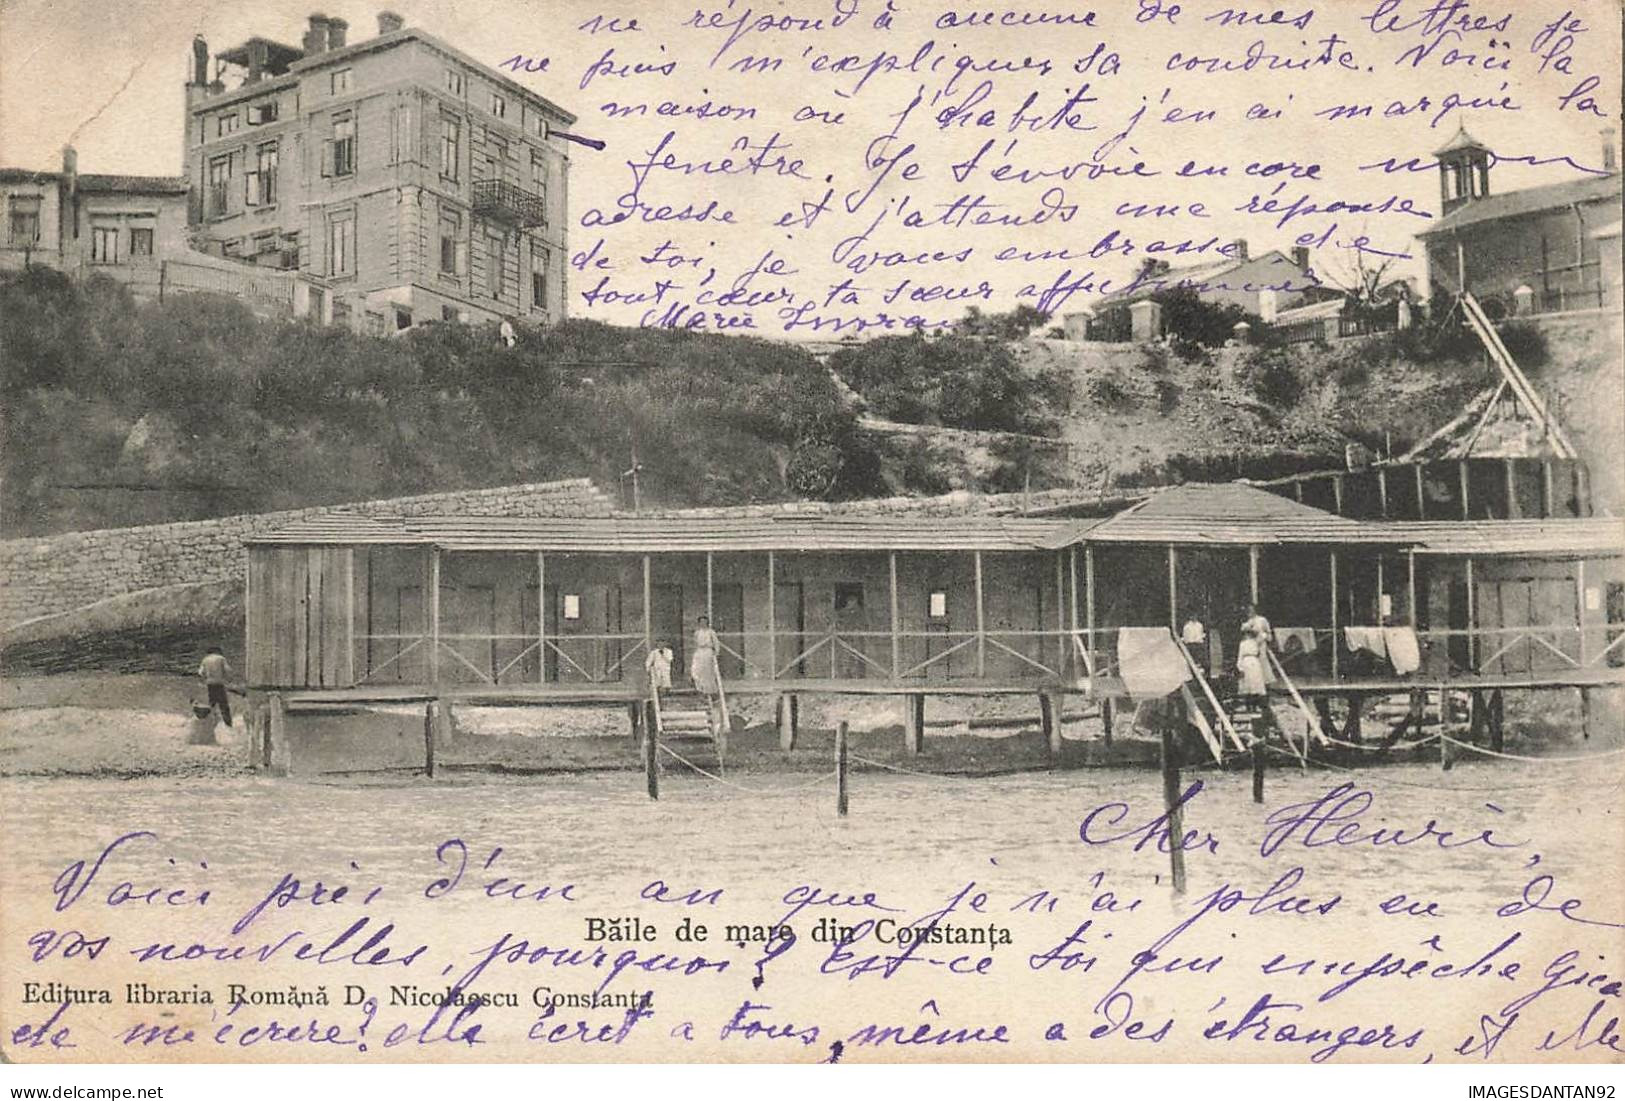 ne répond à aucune de mes lettres je
ne puis m'expliquer sa conduite. Voici la
maison où j'habite j'en ai marqué la
fenêtre. Je t'envoie encore mon
adresse et j'attends une réponse
de toi, je vous embrasse de
tout cœur, ta sœur affectionnée
Marie
Cher Henri,
Voici près d'un an que je n'ai plus eu de
Băile de mare din Constanța
vos nouvelles, pourquoi? Est-ce toi qui empêche Gica
Editura libraria Română D. Nicolaescu Constanța
de m'écrire? elle écrit a tous, même a des étrangers, et elle
delcampe.net
IMAGESDANTAN92